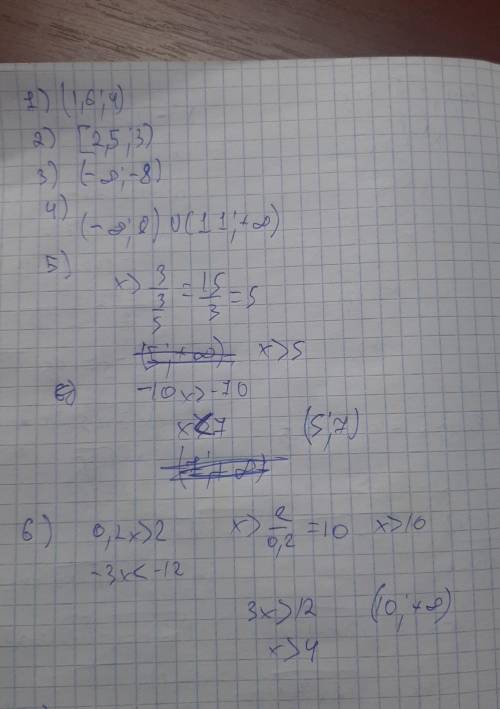 1) (1,6; 4)
2) [2,5; 3)
3) (-∞; -8)
4) (-∞; 8) U (11; +∞)
5) x > 3/(3/5) = 15/3 = 5
x > 5
-10x > -70
x < 7 (5; 7)
6) 0,2x > 2 x > 2/0,2 = 10 x > 10
-3x < -12
3x > 12 (10; +∞)
x > 4